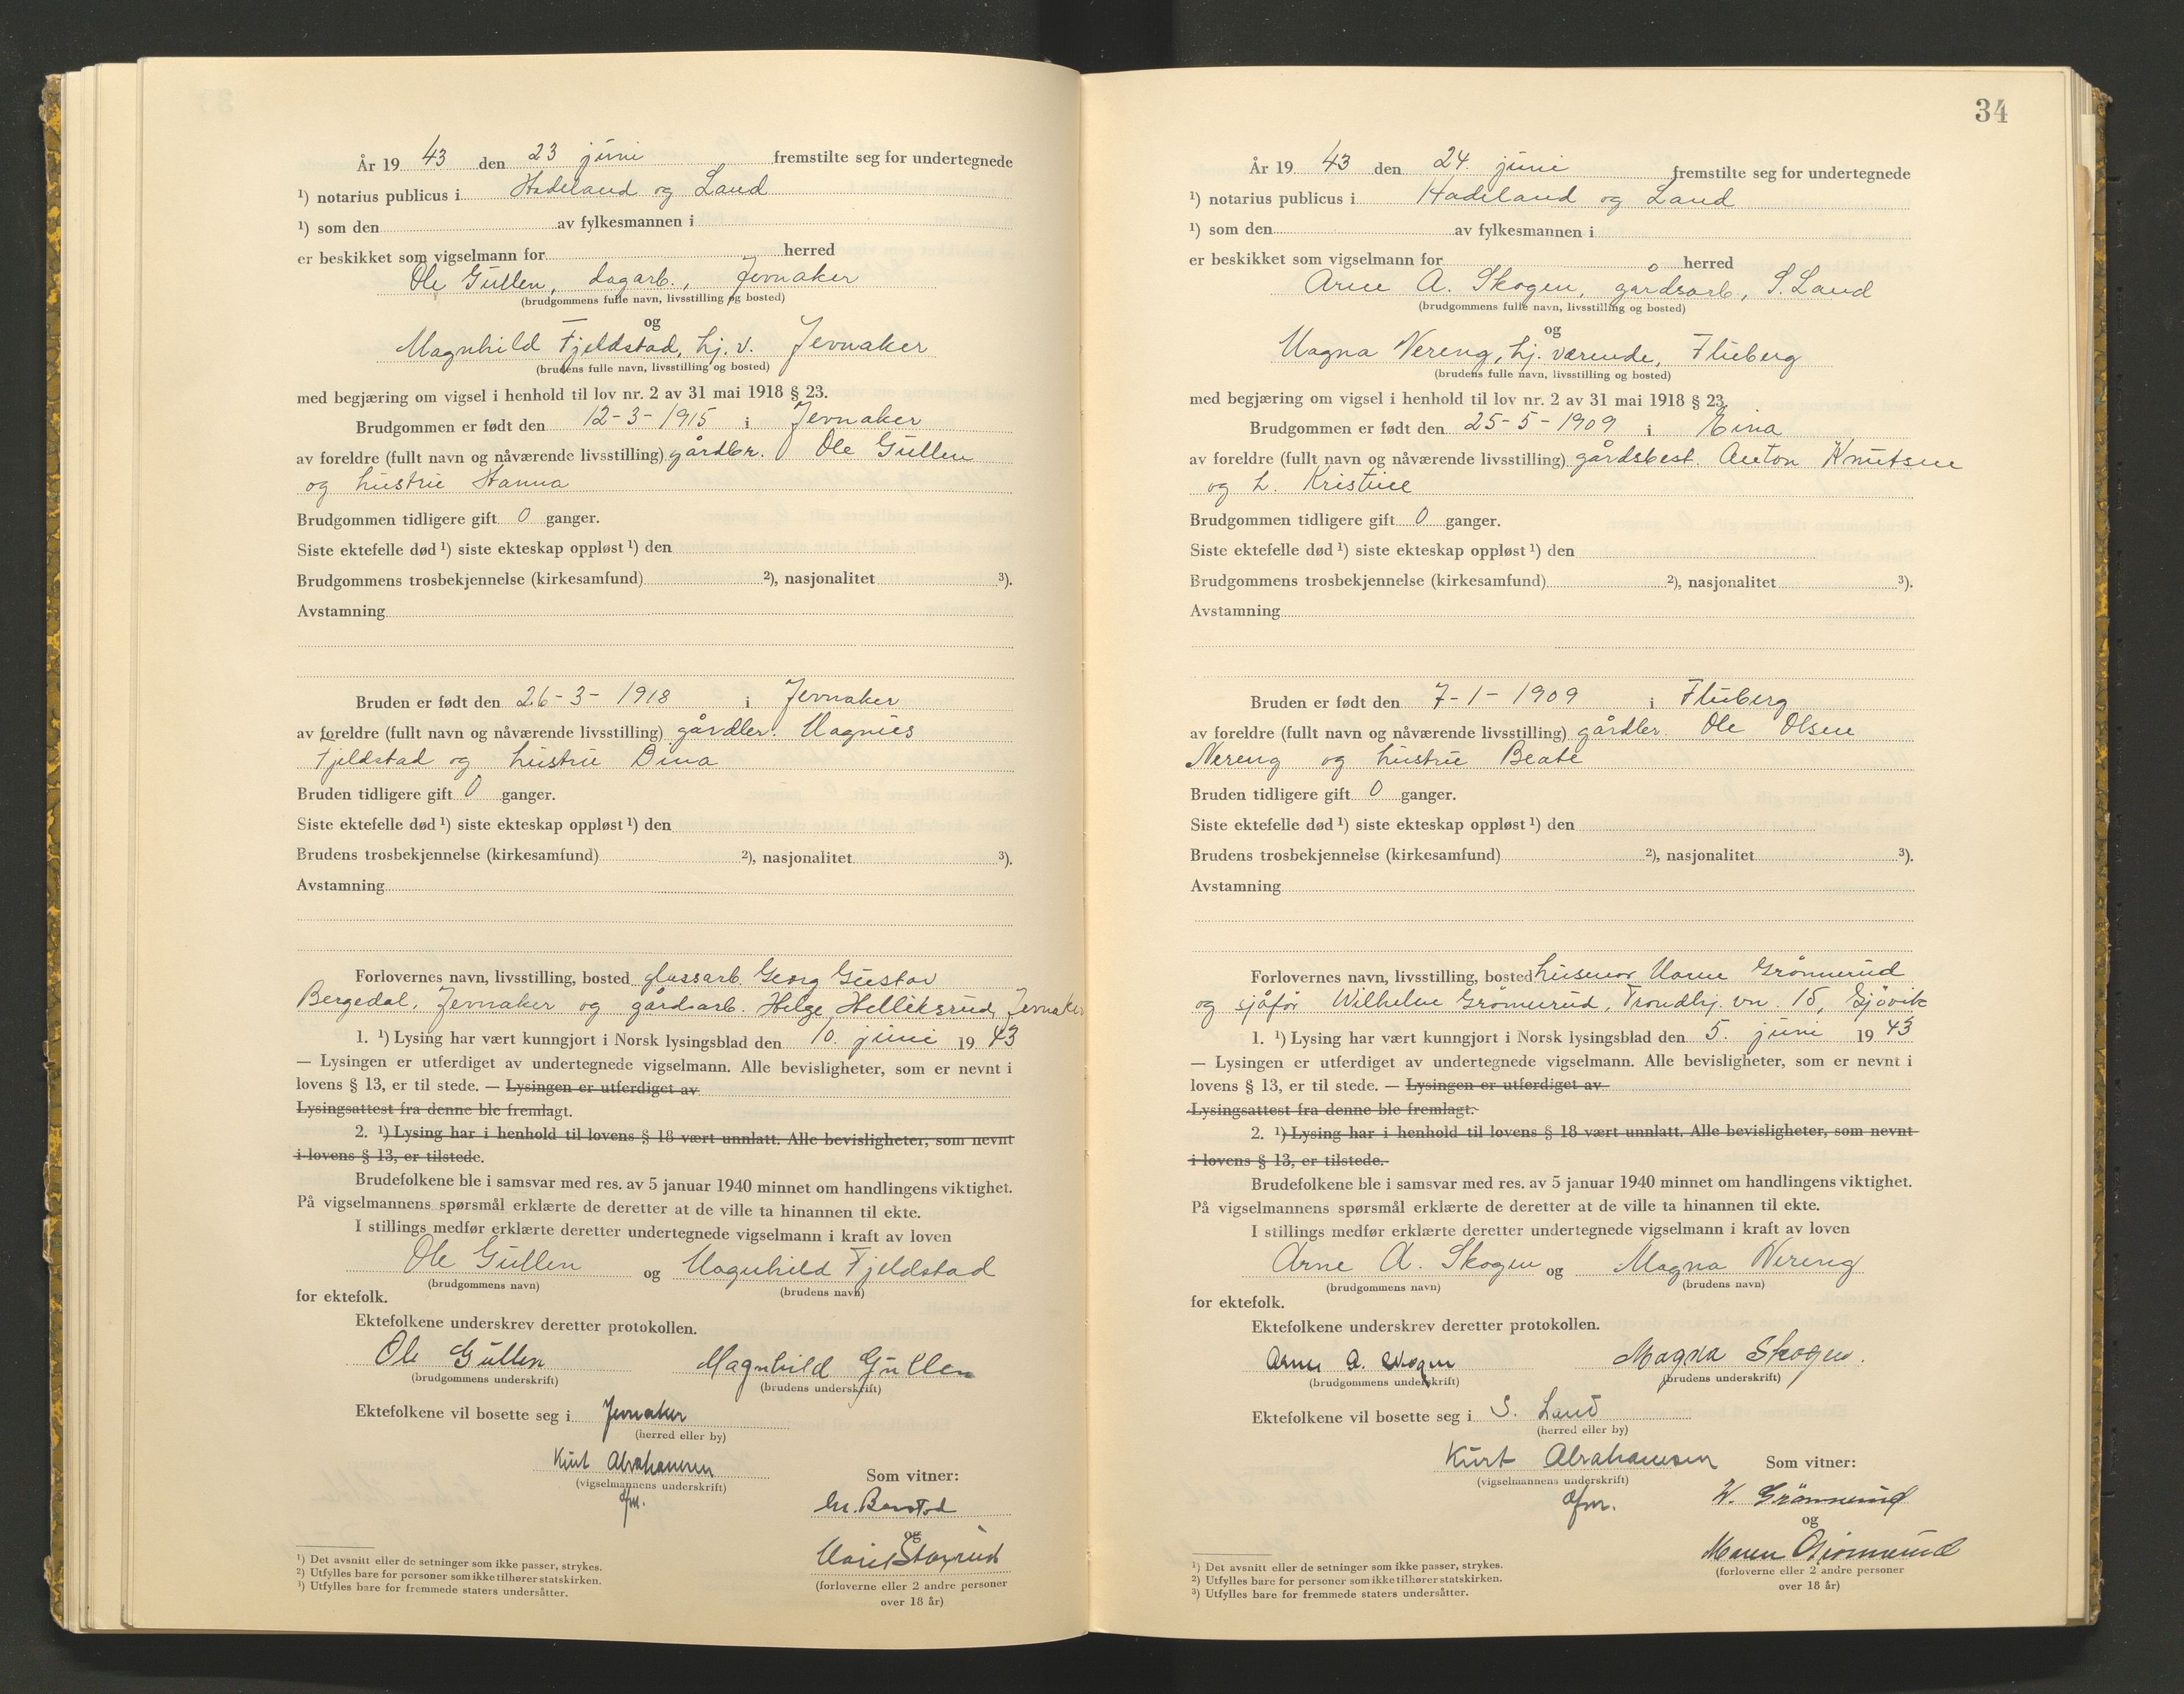 År 19 43 den 23 juni fremstilte seg for undertegnede
¹) notarius publicus i Hadeland og Land
¹) som den av fylkesmannen i
er beskikket som vigselmann for herred
Ole Gullen, dagarb., Jevnaker
(brudgommens fulle navn, livsstilling og bosted)
og
Magnhild Fjeldstad, hj. v. Jevnaker
(brudens fulle navn, livsstilling og bosted)
med begjæring om vigsel i henhold til lov nr. 2 av 31 mai 1918 § 23.
Brudgommen er født den 12-3-1915 i Jevnaker
av foreldre (fullt navn og nåværende livsstilling) gårdbr. Ole Gullen
og hustru Hanna
Brudgommen tidligere gift 0 ganger.
Siste ektefelle død ¹) siste ekteskap oppløst ¹) den
Brudgommens trosbekjennelse (kirkesamfund) ²), nasjonalitet ³).
Avstamning
Bruden er født den 26-3-1918 i Jevnaker
av foreldre (fullt navn og nåværende livsstilling) gårdbr. Magnus
Fjeldstad og hustru Dina
Bruden tidligere gift 0 ganger.
Siste ektefelle død ¹) siste ekteskap oppløst ¹) den
Brudens trosbekjennelse (kirkesamfund) ²), nasjonalitet ³).
Avstamning
Forlovernes navn, livsstilling, bosted glassarb. Georg Gustav
Bergedal, Jevnaker og gårdsarb. Helge Helleksrud, Jevnaker
1. ¹) Lysing har vært kunngjort i Norsk lysingsblad den 10. juni 19 43
— Lysingen er utferdiget av undertegnede vigselmann. Alle bevisligheter, som er nevnt i
lovens § 13, er til stede. — Lysingen er utferdiget av
Lysingsattest fra denne ble fremlagt.
2. ¹) Lysing har i henhold til lovens § 18 vært unnlatt. Alle bevisligheter, som nevnt
i lovens § 13, er tilstede.
Brudefolkene ble i samsvar med res. av 5 januar 1940 minnet om handlingens viktighet.
På vigselmannens spørsmål erklærte de deretter at de ville ta hinannen til ekte.
I stillings medfør erklærte deretter undertegnede vigselmann i kraft av loven
Ole Gullen og Magnhild Fjeldstad
(brudgommens navn) (brudens navn)
for ektefolk.
Ektefolkene underskrev deretter protokollen.
Ole Gullen Magnhild Gullen
(brudgommens underskrift) (brudens underskrift)
Ektefolkene vil bosette seg i Jevnaker
(herred eller by)
Kurt Abrahamsen
(vigselmannens underskrift)
Som vitner:
og
(forloverne eller 2 andre personer
over 18 år)
¹) Det avsnitt eller de setninger som ikke passer, strykes.
²) Utfylles bare for personer som ikke tilhører statskirken.
³) Utfylles bare for fremmede staters undersåtter.
34
År 19 43 den 24 juni fremstilte seg for undertegnede
¹) notarius publicus i Hadeland og Land
¹) som den av fylkesmannen i
er beskikket som vigselmann for herred
Arne A. Skogen, gårdsarb, S. Land
(brudgommens fulle navn, livsstilling og bosted)
og
Magna Nereng, hj. værende, Fluberg
(brudens fulle navn, livsstilling og bosted)
med begjæring om vigsel i henhold til lov nr. 2 av 31 mai 1918 § 23.
Brudgommen er født den 25-5-1909 i Eina
av foreldre (fullt navn og nåværende livsstilling) gårdsbest. Anton Knutsen
og h. Kristine
Brudgommen tidligere gift 0 ganger.
Siste ektefelle død ¹) siste ekteskap oppløst ¹) den
Brudgommens trosbekjennelse (kirkesamfund) ²), nasjonalitet ³).
Avstamning
Bruden er født den 7-1-1909 i Fluberg
av foreldre (fullt navn og nåværende livsstilling) gårdbr. Ole Olsen
Nereng og hustru Beate
Bruden tidligere gift 0 ganger.
Siste ektefelle død ¹) siste ekteskap oppløst ¹) den
Brudens trosbekjennelse (kirkesamfund) ²), nasjonalitet ³).
Avstamning
Forlovernes navn, livsstilling, bosted husmor Maren Grønnerud
og sjåfør Wilhelm Grønnerud, Trondhj. vn. 15, Gjøvik
1. ¹) Lysing har vært kunngjort i Norsk lysingsblad den 5. juni 19 43
— Lysingen er utferdiget av undertegnede vigselmann. Alle bevisligheter, som er nevnt i
lovens § 13, er til stede. — Lysingen er utferdiget av
Lysingsattest fra denne ble fremlagt.
2. ¹) Lysing har i henhold til lovens § 18 vært unnlatt. Alle bevisligheter, som nevnt
i lovens § 13, er tilstede.
Brudefolkene ble i samsvar med res. av 5 januar 1940 minnet om handlingens viktighet.
På vigselmannens spørsmål erklærte de deretter at de ville ta hinannen til ekte.
I stillings medfør erklærte deretter undertegnede vigselmann i kraft av loven
Arne A. Skogen og Magna Nereng
(brudgommens navn) (brudens navn)
for ektefolk.
Ektefolkene underskrev deretter protokollen.
Arne A. Skogen Magna Skogen.
(brudgommens underskrift) (brudens underskrift)
Ektefolkene vil bosette seg i S. Land
(herred eller by)
Kurt Abrahamsen
(vigselmannens underskrift)
Som vitner:
W. Grønnerud
og
Maren Grønnerud
(forloverne eller 2 andre personer
over 18 år)
¹) Det avsnitt eller de setninger som ikke passer, strykes.
²) Utfylles bare for personer som ikke tilhører statskirken.
³) Utfylles bare for fremmede staters undersåtter.